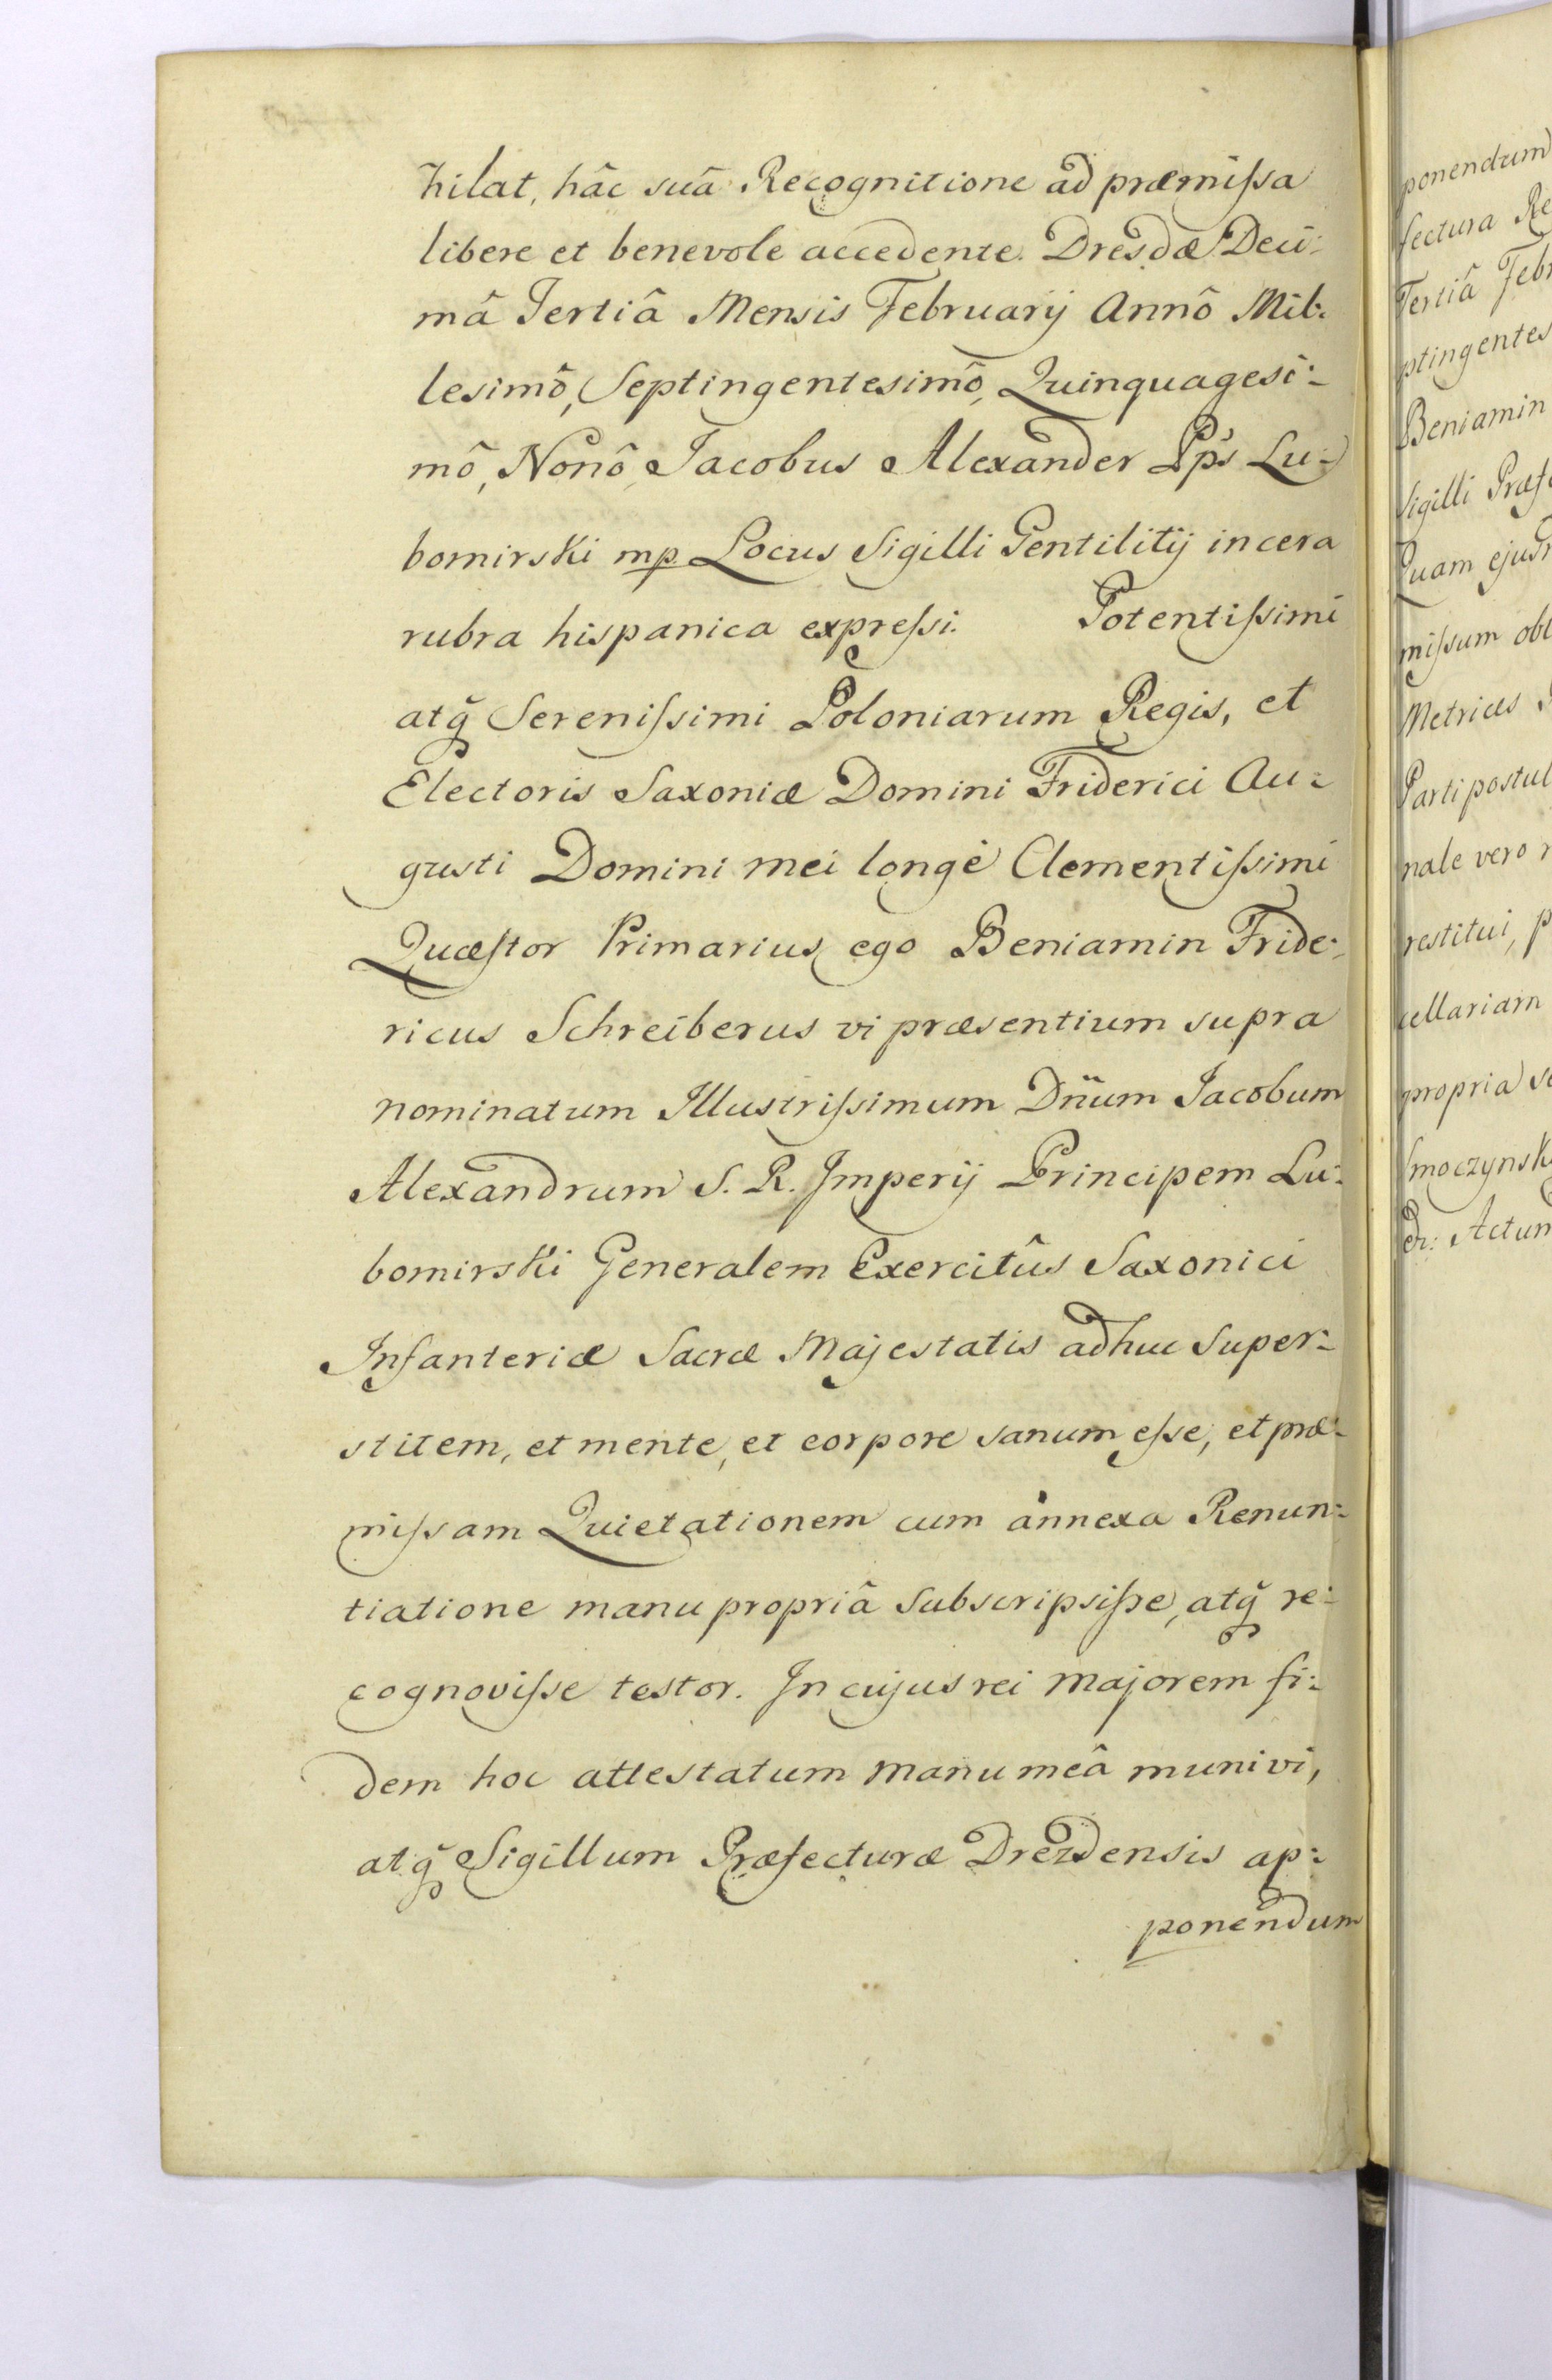 hilat, hâc suâ Recognitione ad præmiſsa
libere et benevole accedente. Dresdæ Deci:
mâ Tertiâ Mensis Februarij Annô Mil:
lesimô, Septingentesimô, Quinquagesi:
mô, Nonô, Jacobus Alexander Pp̃s Lu:
bomirski mp. Locus Sigilli Gentilitij in cera
rubra hispanica expreſsi. Potentiſsimi
atq̃ Sereniſsimi Poloniarum Regis, et
Electoris Saxoniæ Domini Friderici Au:
gusti Domini mei longè Clementiſsimi
Quæſtor Primarius ego Beniamin Fride:
ricus Schreiberus vi præsentium supra
nominatum Illustriſsimum Dn̈um Jacobum
Alexandrum S. R. Imperij Principem Lu:
bomirski Generalem Exercitûs Saxonici
Infanteriæ Sacræ Majestatis adhuc Super:
stitem, et mente, et corpore sanum eſse, et præ:
miſsam Quietationem cum annexa Renun:
tiatione manu propriâ Subscripsiſse, atq̃ re:
cognoviſse testor. In cujus rei majorem fi:
dem hoc attestatum manu meâ munivi,
atq̃ Sigillum Præfecturæ Drezdensis ap:
ponendum
ponendum
fectura Re
Tertiâ Febr
ptingentes
Beniamin
Sigilli Præf
Quam ejusd
miſsum obl
Metrices
Parti postul
nale vero r
restitui, p
cellariam
propria s
Smoczynsk
Actum